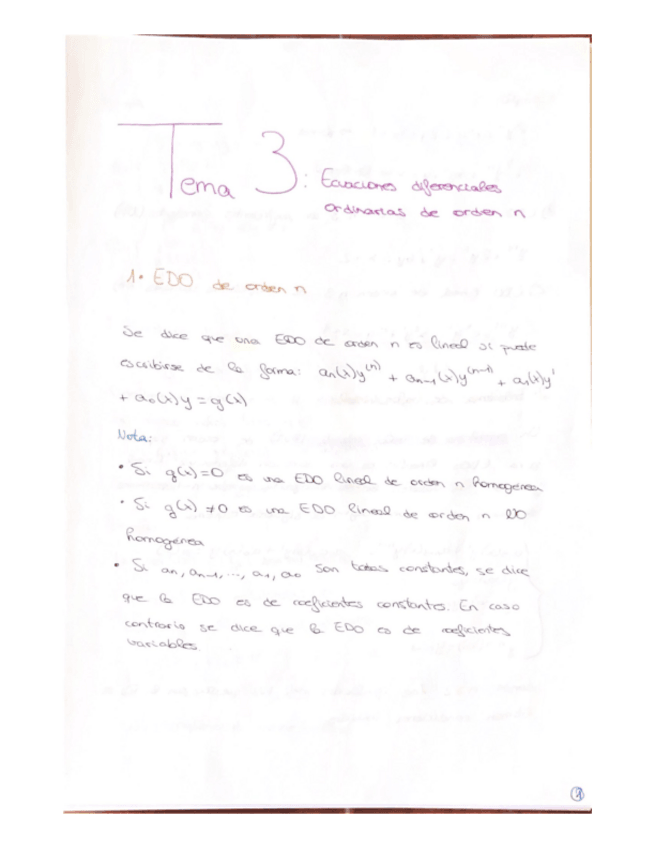 Tema 3: Ecuaciones diferenciales
ordinarias de orden n
1. EDO de orden n
Se dice que una EDO de orden n es lineal si puede
escribirse de la forma: an(x)y⁽ⁿ⁾ + an-1(x)y⁽ⁿ⁻¹⁾ + a1(x)y'
+ a0(x)y = g(x)
Nota:
• Si g(x)=0 es una EDO lineal de orden n homogénea
• Si g(x) ≠0 es una EDO lineal de orden n NO
homogénea
• Si an, an-1, ..., a1, a0 son todas constantes, se dice
que la EDO es de coeficientes constantes. En caso
contrario se dice que la EDO es de coeficientes
variables.
1